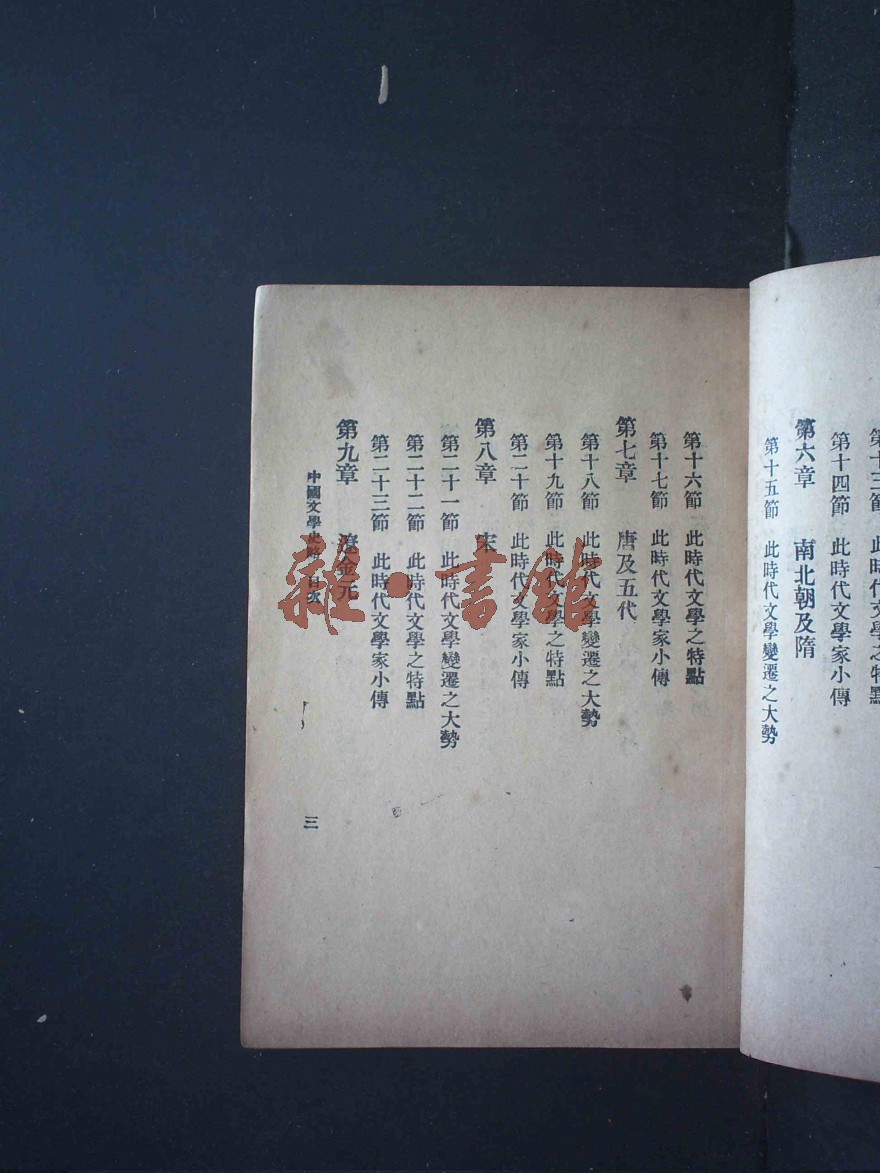 第十三節 此時代文學之特點
第十四節 此時代文學家小傳
第六章 南北朝及隋
第十五節 此時代文學變遷之大勢
第十六節 此時代文學之特點
第十七節 此時代文學家小傳
第七章 唐及五代
第十八節 此時代文學變遷之大勢
第十九節 此時代文學之特點
第二十節 此時代文學家小傳
第八章 宋
第二十一節 此時代文學變遷之大勢
第二十二節 此時代文學之特點
第二十三節 此時代文學家小傳
第九章 遼金元
中國文學史略 目次
三
雜·書館